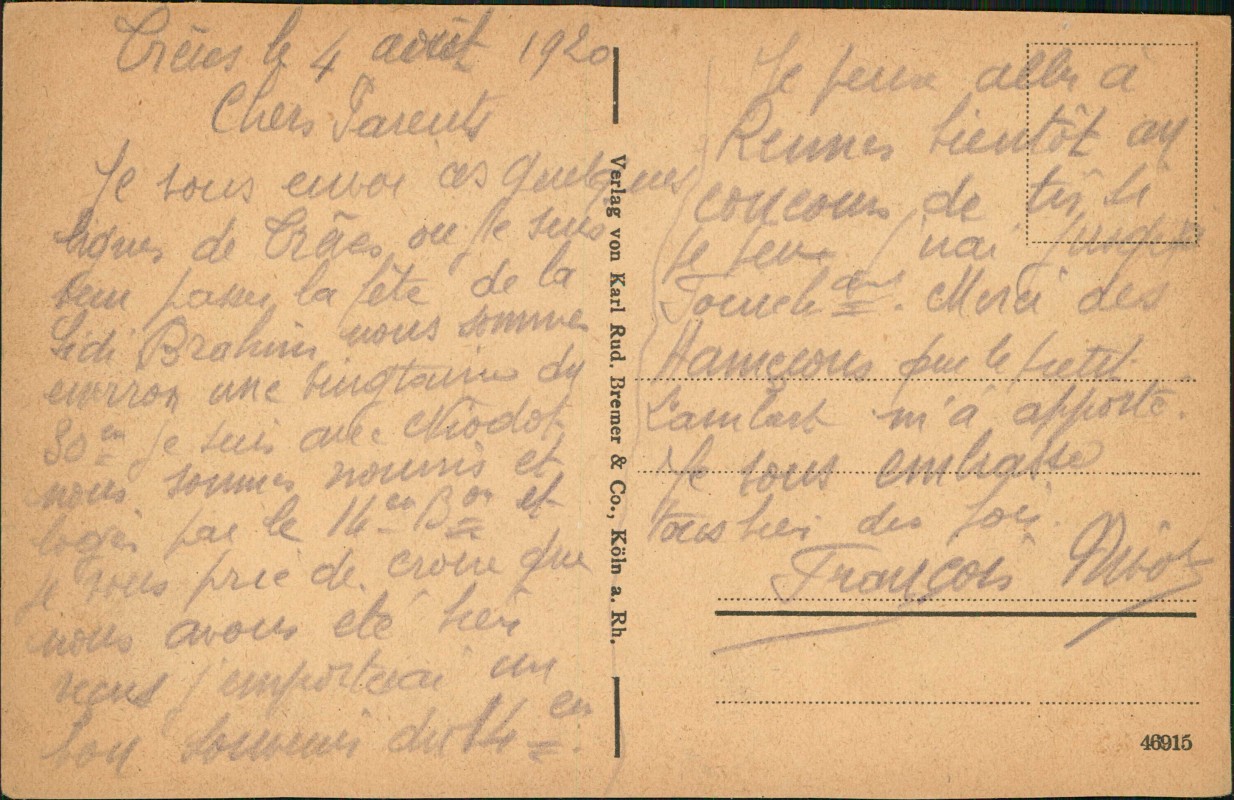 Trêves le 4 août 1920
Chers Parents
Je vous envoi ces quelques
lignes de Trêves ou je suis
venu passer la fête de la
Sidi Brahim nous sommes
environ une vingtaine du
30 em je suis avec Niodot
nous sommes nourris et
logés par le 14 em Bon et
je vous prie de croire que
nous avons été bien
reçus j'emporterai un
bon souvenir du 14 em.
Verlag von Karl Rud. Bremer & Co., Köln a. Rh.
Je peux aller à
Rennes bientôt au
concours de tir si
je veux j'irai
. Merci des
Hameçons que le petit
Lambart m'a apporté.
Je vous embrasse
tous bien des fois.
François
46915